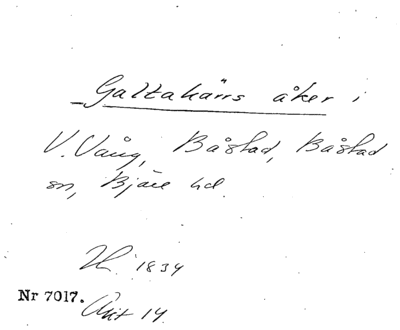 Galtakärrs åker i
V. Vång, Båstad, Båstad
sn, Bjäre hd.
H. 1834
Nr 7017. Akt 14.